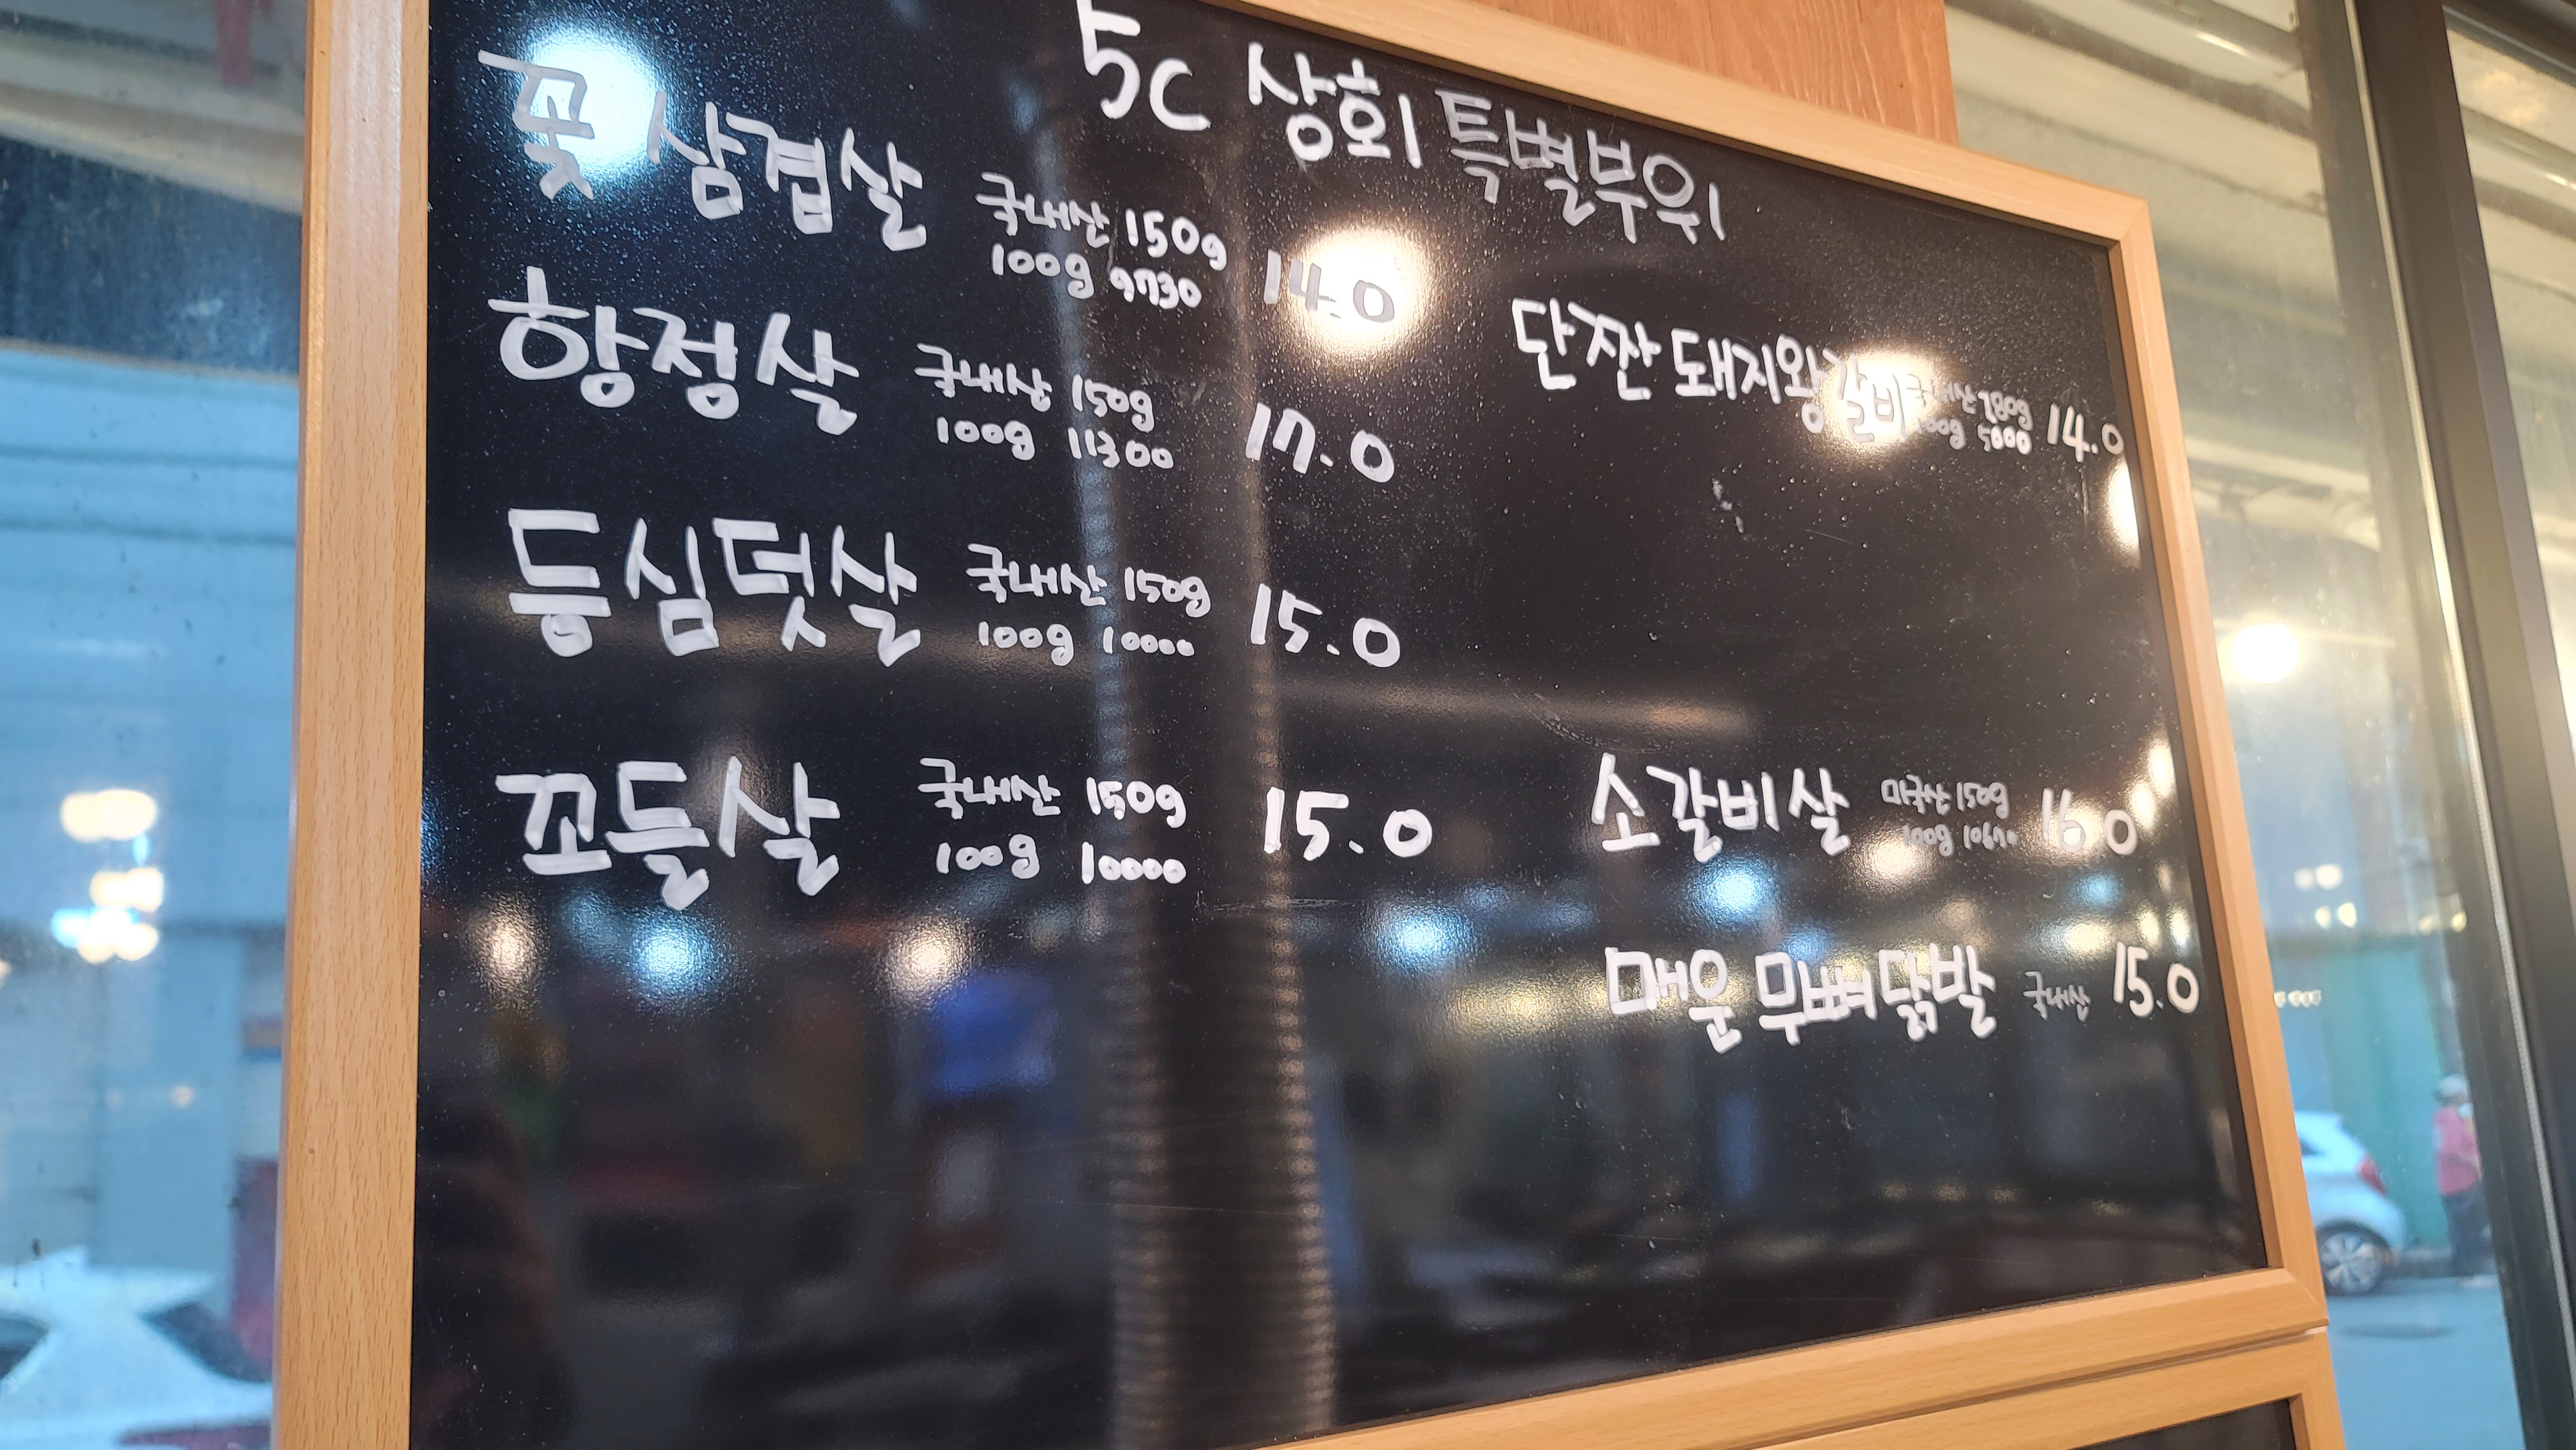 5C 상회 특별부위
꽃 삼겹살 국내산 150g 14.0
100g 9730
항정살 국내산 150g 17.0
100g 11300
등심덧살 국내산 150g 15.0
100g 10000
꼬들살 국내산 150g 15.0
100g 10000
단짠 돼지왕갈비 국내산 280g 14.0
100g 5000
소갈비살 미국산 150g 16.0
100g
매운 무뼈닭발 국내산 15.0